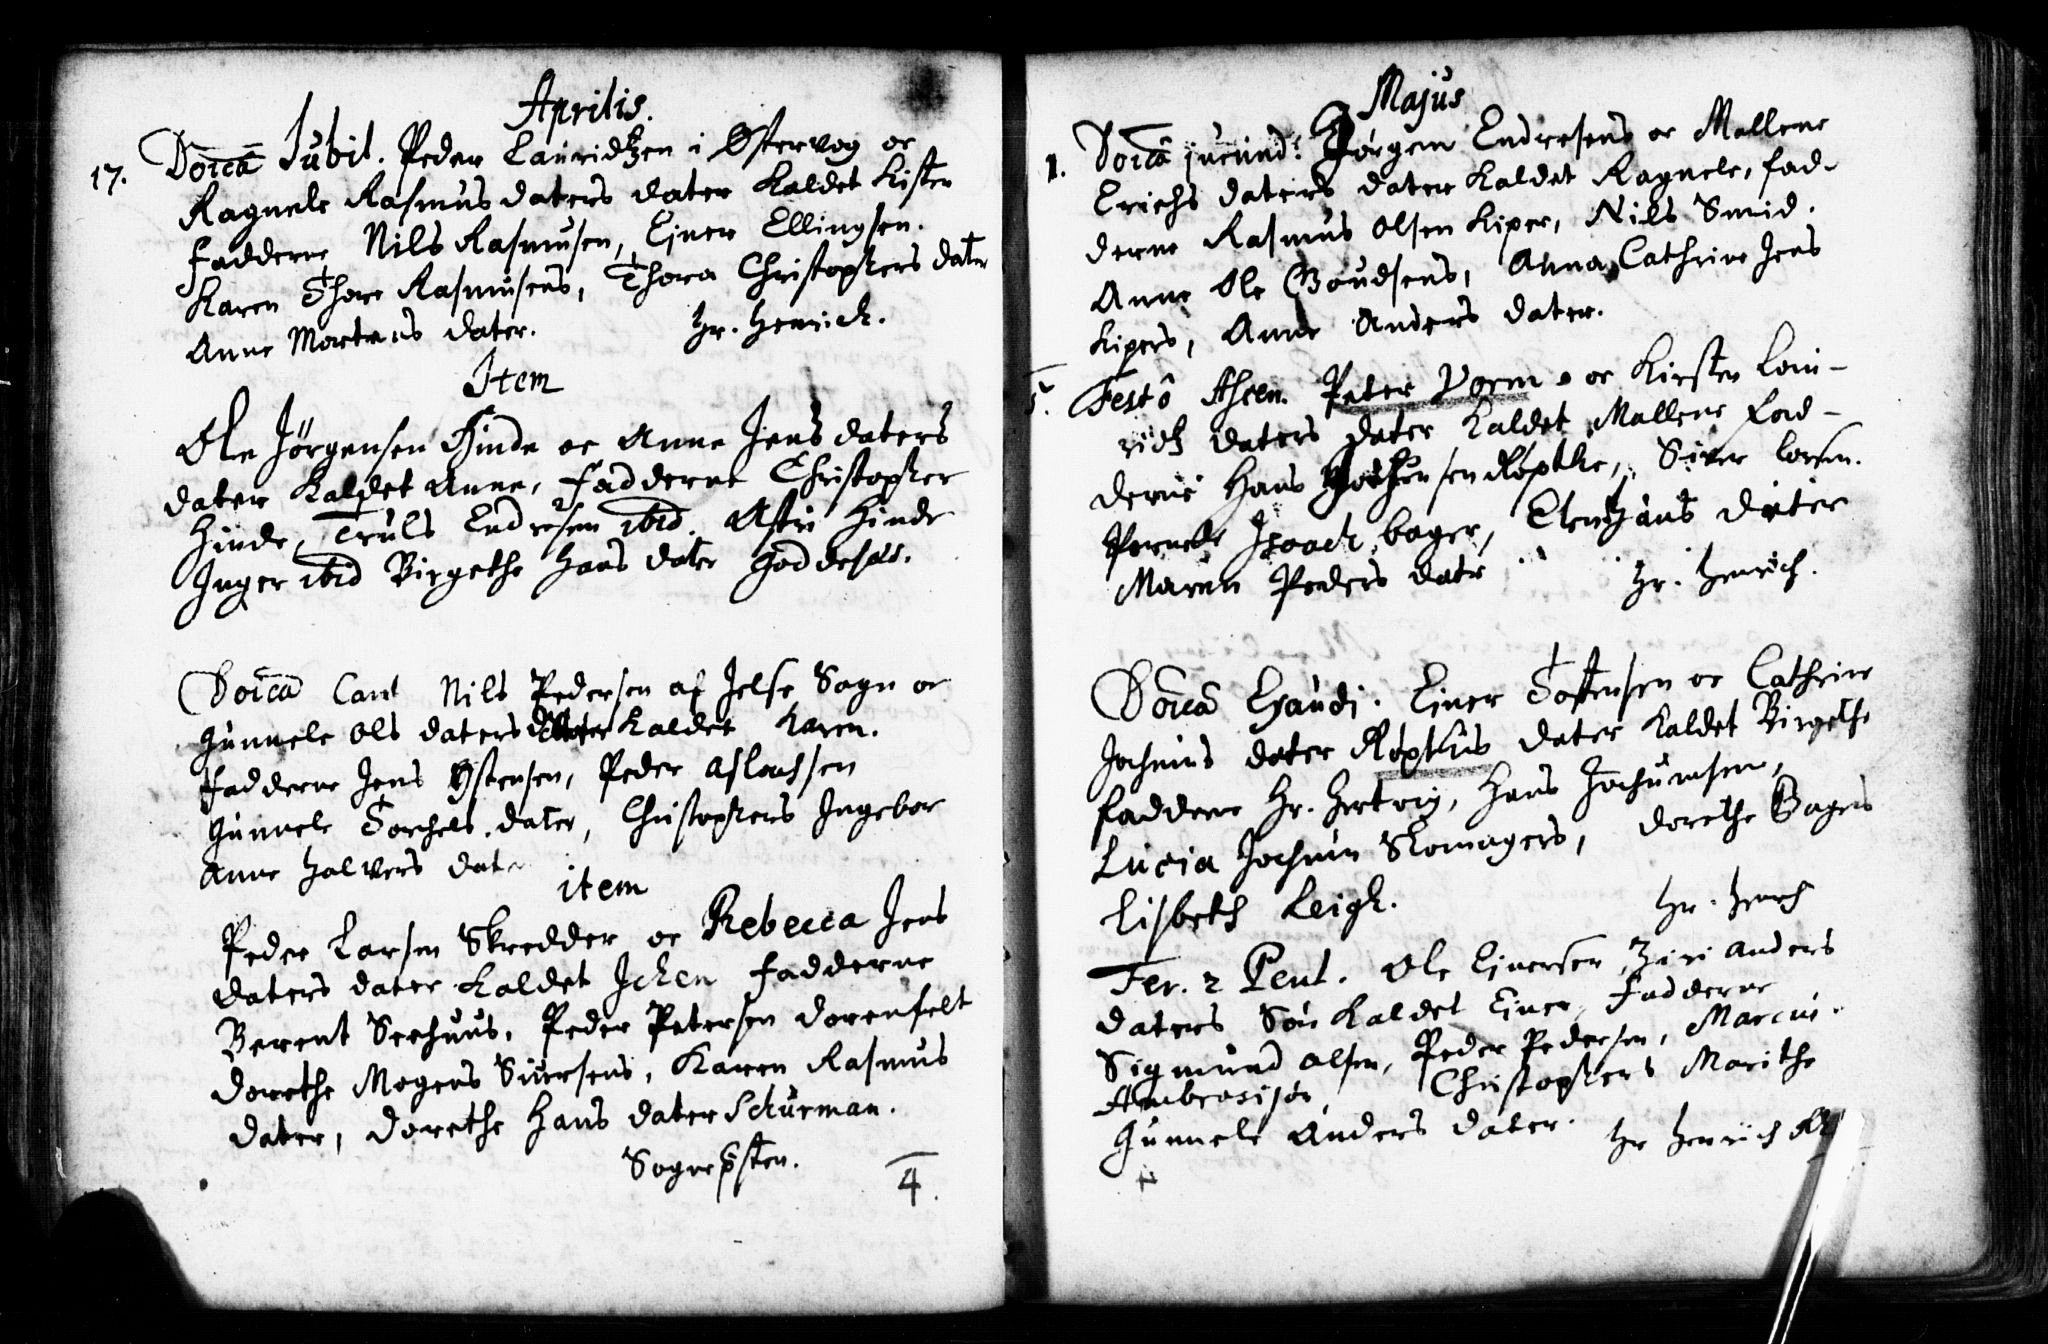 Aprilis.
17. Doica Jubil. Peder Lauridtzen i Østervog oc
Ragnele Rasmus daters dater kaldet Kisten
fadderne Nils Rasmusen, Ejner Ellingsen.
Karen Thore Rasmusens, Thora Christophers dater
Anne Mortens dater. Hr. Henrich.
Item
Ole Jørgensen Hinde oc Anne Jens daters
dater kaldet Anne, fadderne Christopher
Hinde, Truls Endresen ibid. Astri Hinde
Inger ibid Birgethe Hans dater Goddesøs.
Doica Cant Nils Pedersen af Jelse Sogn oc
Gunnele Ols daters dater kaldet Karen.
fadderne Jens Østensen, Peder Aslachsen
Gunnele Torchels dater, Christophers Ingebor
Anne Halvers dater
item
Peder Larsen Skredder oc Rebecca Jens
daters dater kaldet Ichen fadderne
Berent Seehuus, Peder Petersen Dorenfelt
Dorethe Mogens Siversens, Karen Rasmus
dater, Dorethe Hans dater Schurman.
Sogne psten.
4.
Majus
1. Doica jucund: Jørgen Endresens oc Mallene
Erichs daters dater kaldet Ragnele, fad-
derne Rasmus Olsen Kiper, Nils Smid.
Anne Ole Goudsens, Anna Cathrine Jens
Kipers, Anne Anders dater.
5. Festo Ascen. Peter Vorm oc Kirsten Lau-
ridtz daters dater kaldet Mallene fad-
derne Hans Jochumsen Røpthe, Siver Lorsen.
Pernele Isaach bager, Elen Hans dater
Maren Peders datr Hr. Henrich.
Doica Exaudi. Ejner Tostensen oc Cathrine
Jochums dater Røpthis dater kaldet Birgethe
faddere Hr. Hertvig, Hans Jochumsen,
Lucia Jochum Skomagers, Dorethe Bagers
Lisbeth Leigh. Hr. Henrich
Fer. 2 Pent. Ole Ejnersen, Ziri Anders
daters Søn kaldet Ejner, fadderne
Sigmund Olsen, Peder Pedersen, Marcus
Ambrosisøn, Christophers Marithe
Gunnele Anders dater. Hr Henrich